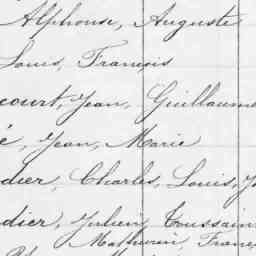 Alphonse, Auguste
Louis, François
court, Jean, Guillaume
é, Jean, Marie
dier, Charles, Louis, J
dier, Julien, Toussain
Mathurin, Franç